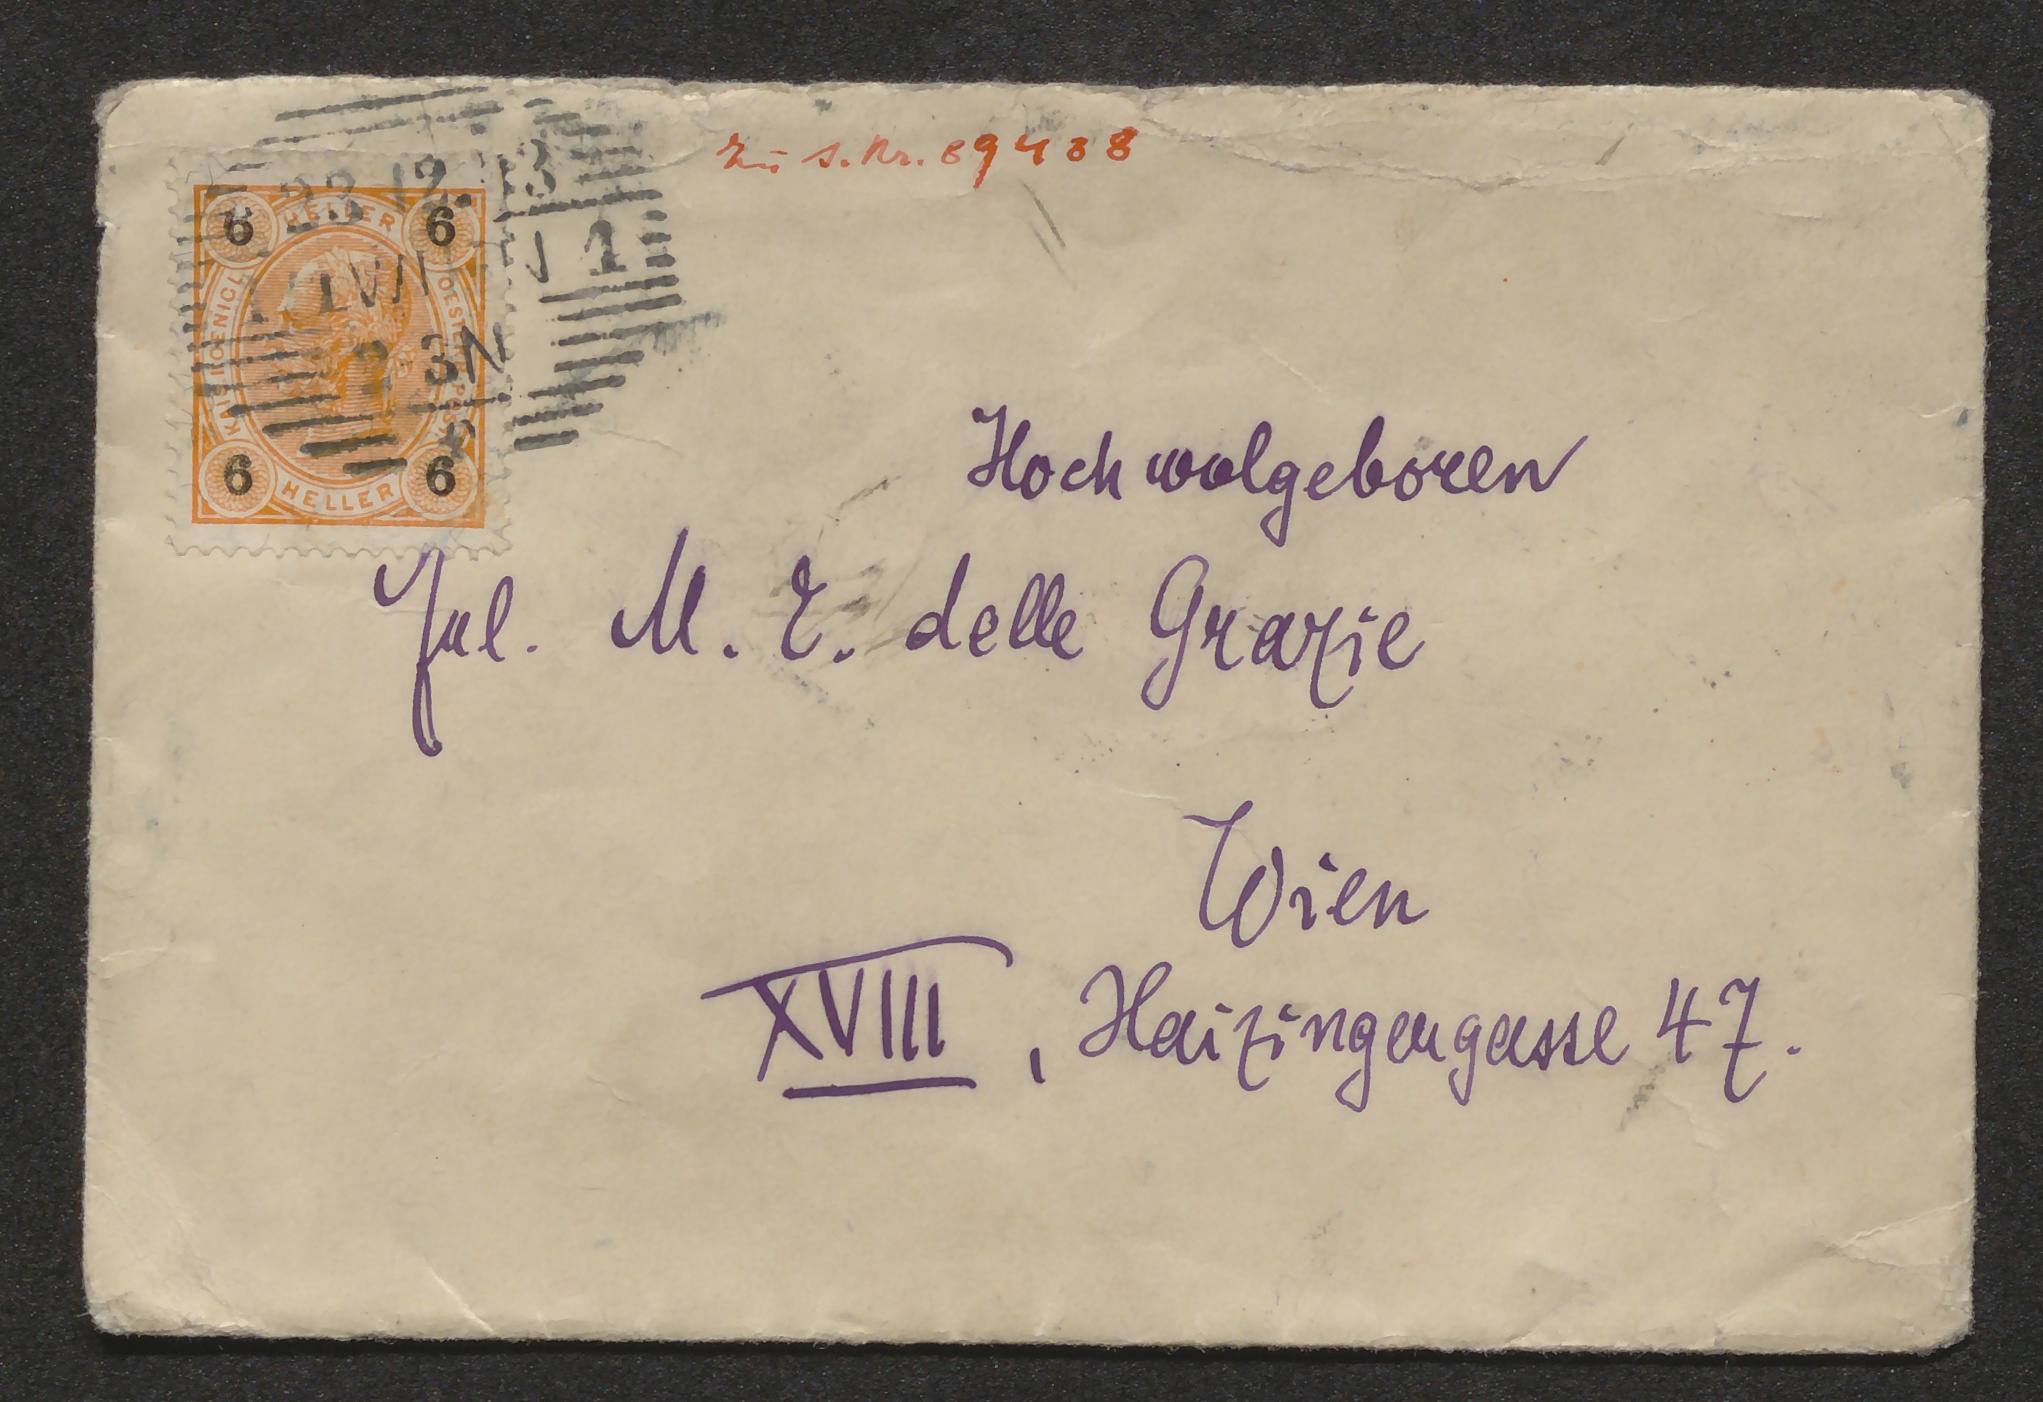 Zu I.Nr. 89438
6 HELLER 6
KAIS. KOENIGL. OESTERR. POST
6 HELLER 6
23 12. 3
WIEN 1
2 3N
Hochwolgeboren
Frl. M. E. delle Grazie
Wien
XVIII, Haizingergasse 47.